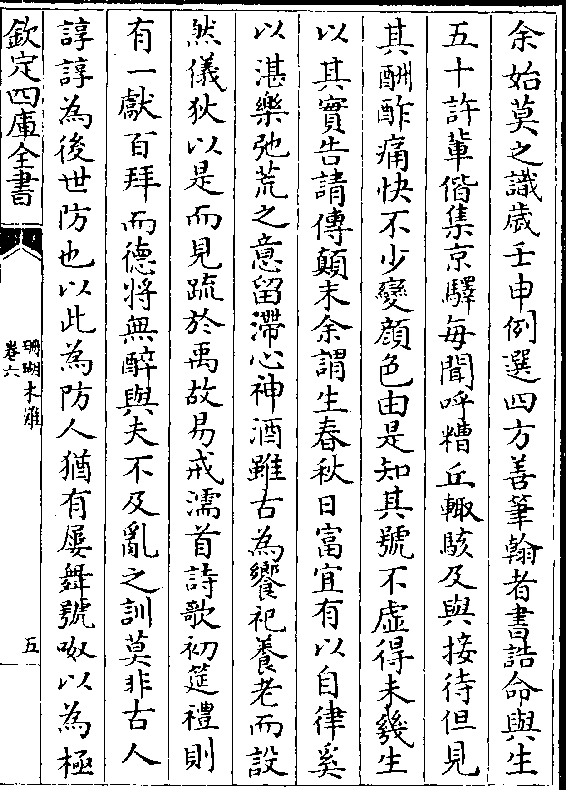 余始莫之識歲壬申例選四方善筆翰者書誥命與生
五十許輩偕集京驛每聞呼糟丘輙駭及與接待但見
其酬酢痛快不少變顔色由是知其號不虛得未幾生
以其實告請傳顛末余謂生春秋日富宜有以自律奚
以湛樂弛荒之意留滯心神酒雖古為饗祀養老而設
然儀狄以是而見疏於禹故易戒濡首詩歌初筵禮則
有一獻百拜而德將無醉與夫不及亂之訓莫非古人
諄諄為後世防也以此為防人猶有屢舞號呶以為極
欽定四庫全書
珊瑚木難
卷六
五